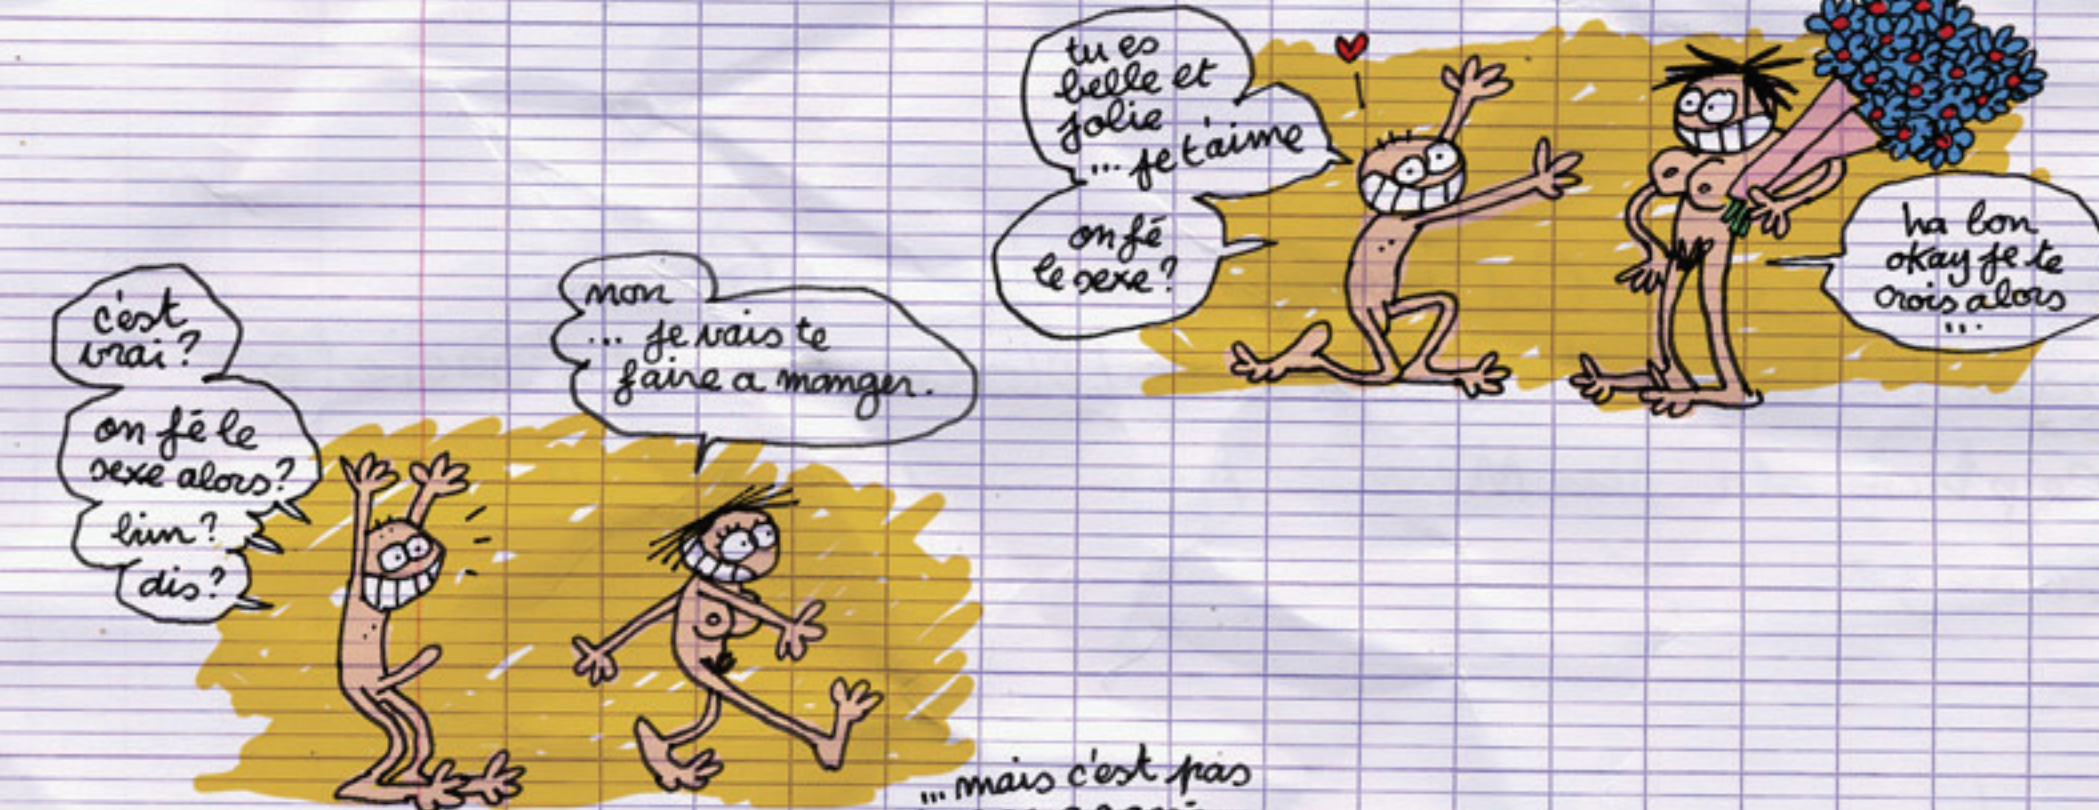 tu es
belle et
jolie
... je t'aime
on fé
le sexe?
ha bon
okay je te
crois alors
...
c'est
vrai?
on fé le
sexe alors?
hin?
dis?
non
... je vais te
faire a manger.
...mais c'est pas